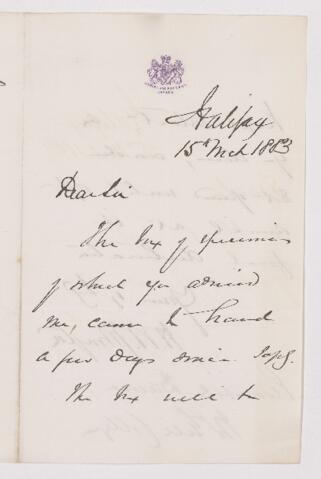 Halifax
15th Mch 1883
Dear Sir
The box of specimens
of which you advised
me, came to hand
a few days since.
The box will be